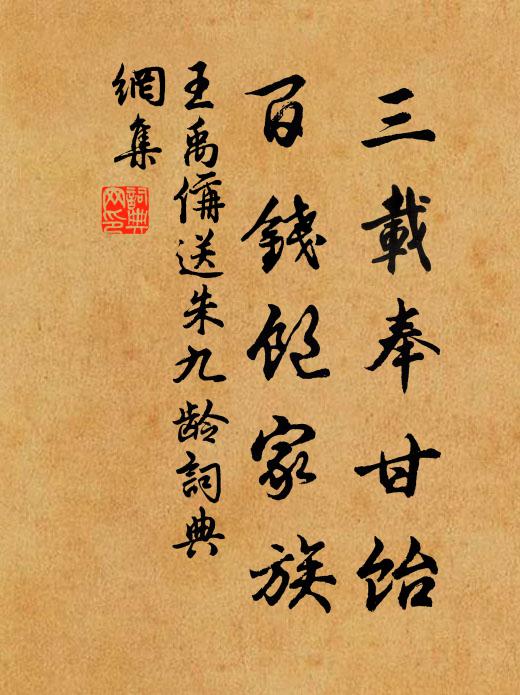 三載奉甘飴
百錢飽家族
王禹偁送朱九齡詞典
網集
詞典网印